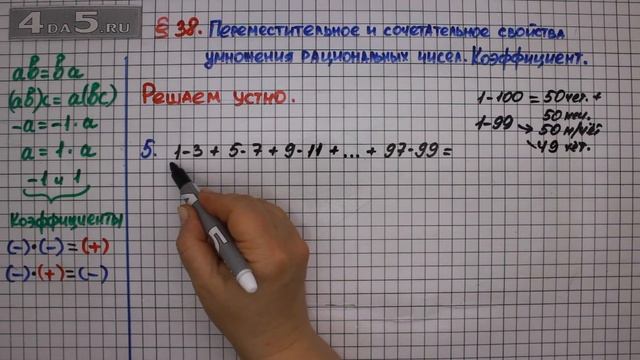 4DA5.RU
§ 38. Переместительное и сочетательное свойства
умножения рациональных чисел. Коэффициент.
ab = ba
(ab)c = a(bc)
-a = -1·a
a = 1·a
-1 и 1
Коэффициенты
(-)·(-)=(+)
(-)·(+)=(-)
Решаем устно.
5. 1-3 + 5-7 + 9-11 + ... + 97-99 =
1-100 = 50 чет. +
50 неч.
1-99 → 50 н/чёт
49 чет.